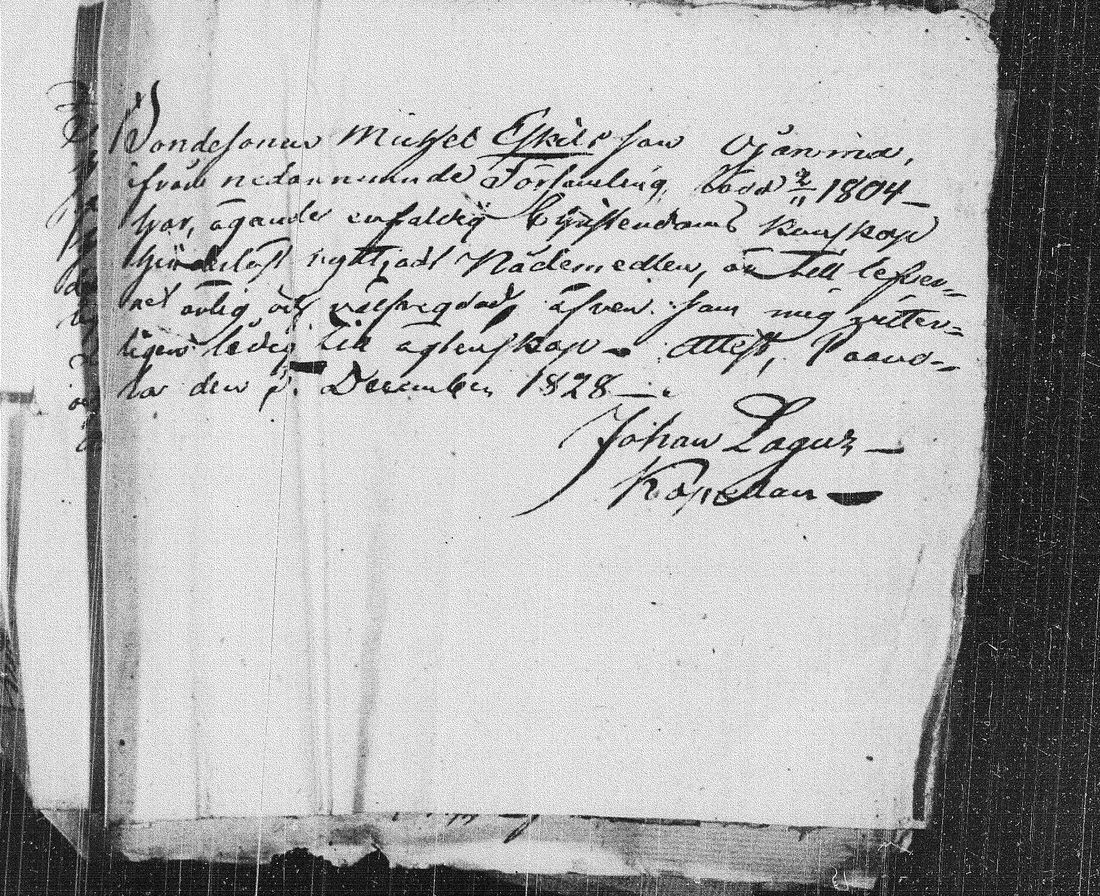 Bondesonen Michel Eskilsson Ojanma,
ifrån nedannämnde Församling, född 2/11 1804 –
har, ägande enfaldig Christendoms kunskap
hinderlöst nyttjadt Nådemedlen, är till lefver-
net ärlig och välfregdad, äfven som mig vitter-
ligen ledig till ägtenskap – Attest, Paavo-
la den 5. December 1828 –
Johan Lagus –
Kapellan –